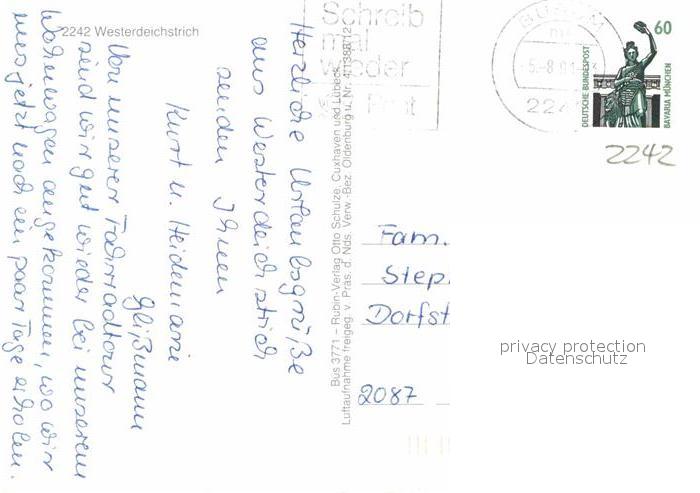 2242 Westerdeichstrich
Herzliche Urlaubsgrüße
aus Westerdeichstrich
senden Ihnen
Kurt u. Heidemarie
Glißmann
Von unserer Fahrradtour
sind wir gut wieder bei unserem
Wohnwagen angekommen, wo wir
uns jetzt noch ein paar Tage erholen.
Büs 3771 – Rubin-Verlag Otto Schulze, Cuxhaven und Lübeck
Luftaufnahme freigeg. v. Präs. d. Nds. Verw.-Bez. Oldenburg u. Nr.
Schreib
mal
wieder
Post
BÜSUM
-5.-8.
224
60
DEUTSCHE BUNDESPOST
BAVARIA MÜNCHEN
2242
Fam.
Step
Dorfst
2087
privacy protection
Datenschutz